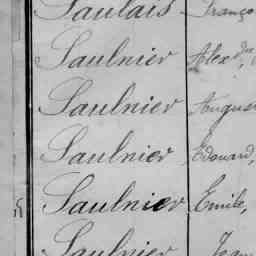 Saulais
Saulnier Alex dre,
Saulnier
Saulnier Edouard,
Saulnier Emile,
Saulnier Jean